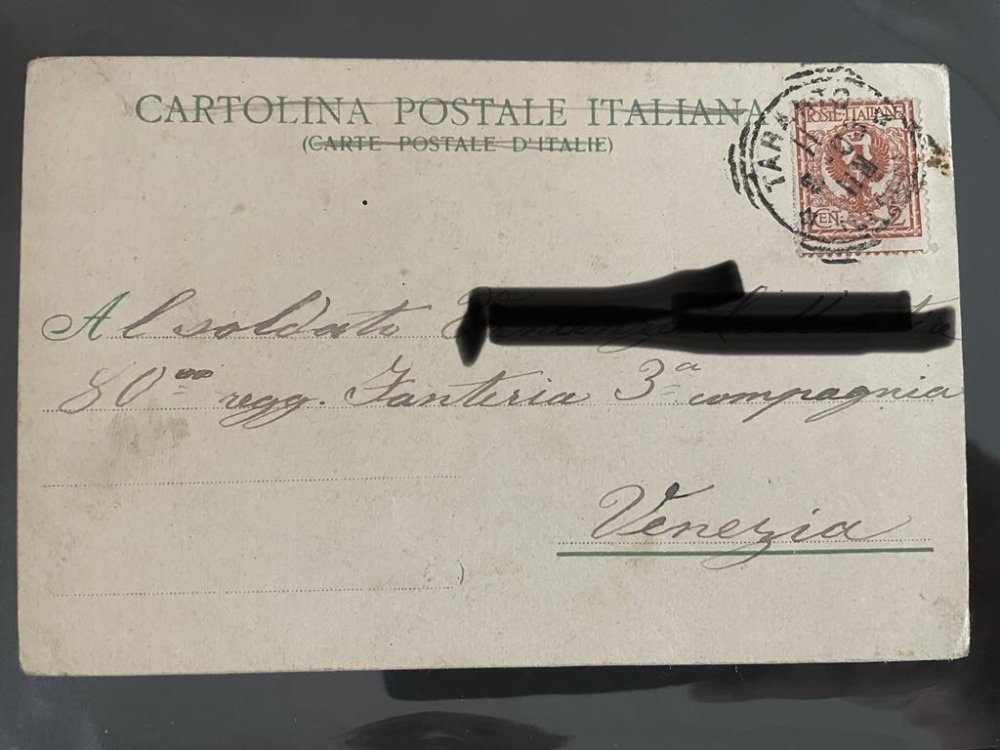 CARTOLINA POSTALE ITALIANA
(CARTE POSTALE D'ITALIE)
TARANTO
POSTE·ITALIANE
CEN. 2
Al soldato
80mo regg. Fanteria 3a compagnia
Venezia